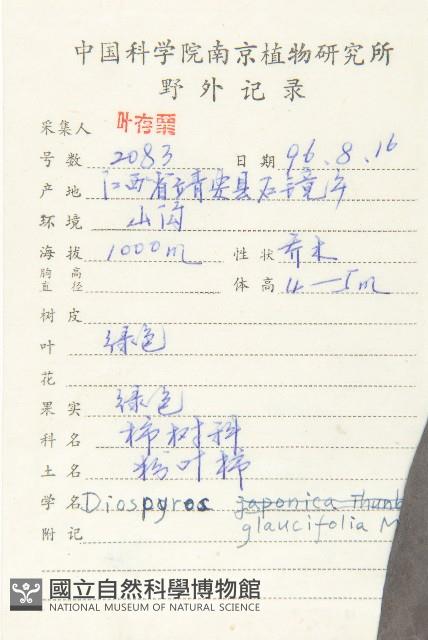 中国科学院南京植物研究所
野外记录
采集人 叶存粟
号数 2083 日期 96.8.16
产地 江西省靖安县石境
环境 山沟
海拔 1000m 性状 乔木
胸高直径 体高 4—5m
树皮
叶 绿色
花
果实 绿色
科名 柿树科
土名 粉叶柿
学名 Diospyros japonica Thunb
glaucifolia M
附记
國立自然科學博物館
NATIONAL MUSEUM OF NATURAL SCIENCE